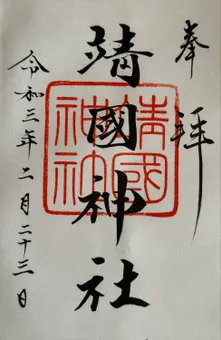 奉拝
靖國神社
靖國
神社
令和三年二月二十三日